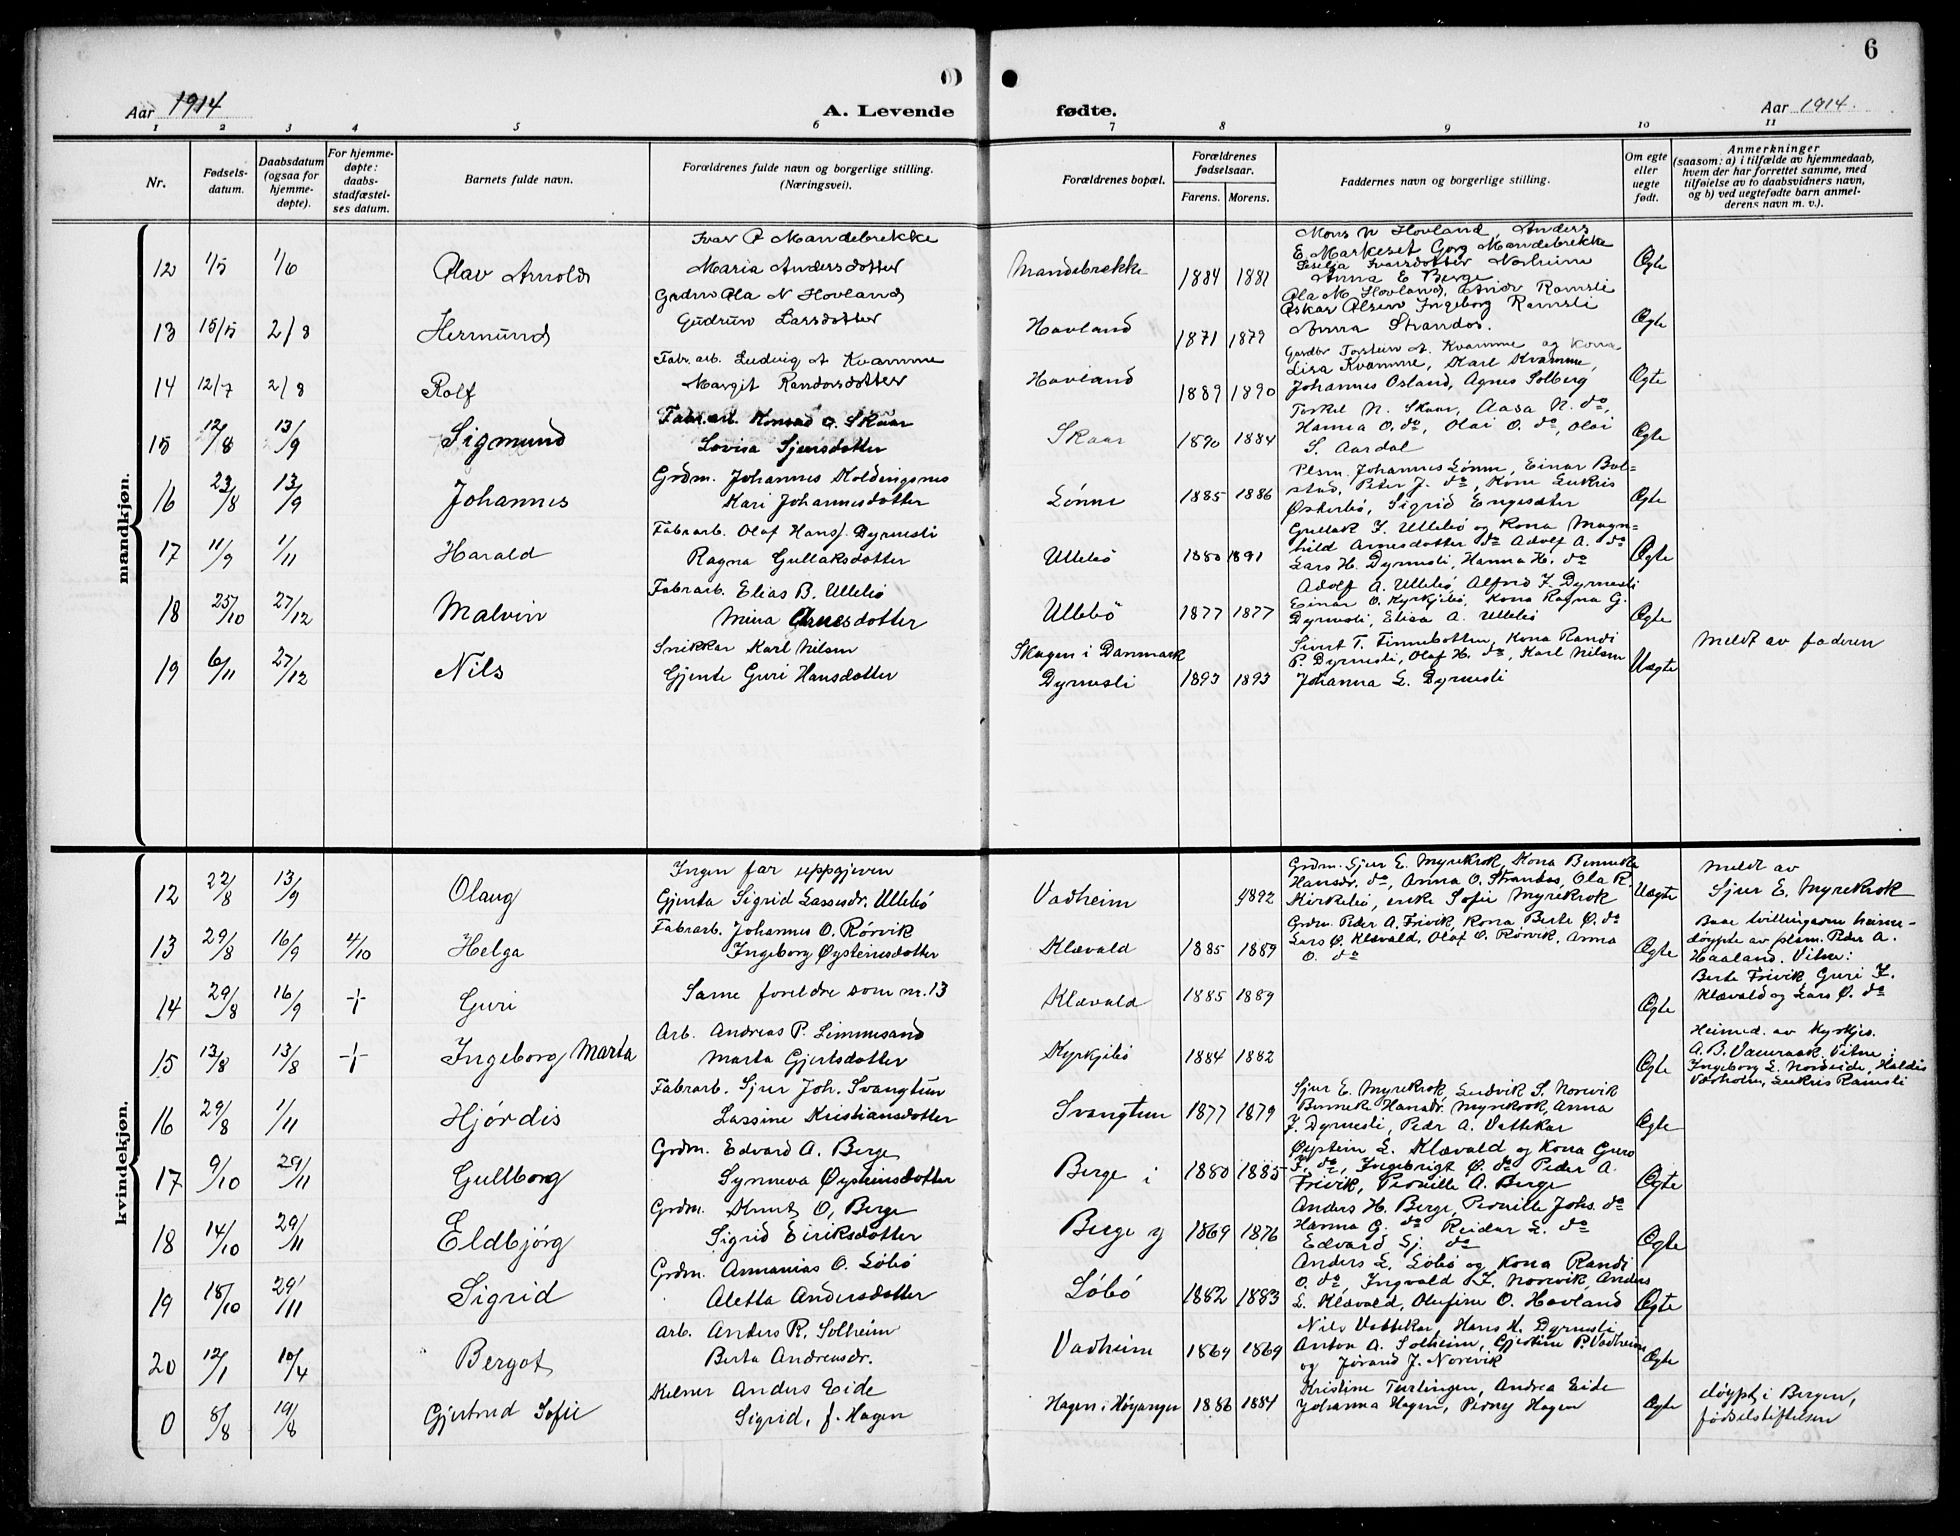 6
Aar 1914
A. Levende fødte.
Aar 1914.
1 2 3 4 5 6 7 8 9 10 11
Nr.
Fødselsdatum.
Daabsdatum (ogsaa for hjemmedøpte).
For hjemmedøpte: daabsstadfæstelses datum.
Barnets fulde navn.
Forældrenes fulde navn og borgerlige stilling. (Næringsvei).
Forældrenes bopæl.
Forældrenes fødselsaar.
Farens. Morens.
Faddernes navn og borgerlige stilling.
Om egte eller uegte født.
Anmerkninger (saasom: a) i tilfælde av hjemmedaab, hvem der har forrettet samme, med tilføielse av to daabsvidners navn, og b) ved uegtefødte barn anmelderens navn m. v.).
mandkjøn.
12 1/5 1/6 Olav Arnold
Ivar P Mandebrekke
Maria Andersdotter
Mandebrekke 1884 1881
Mons N Hovland, Anders
E. Markeset Gorg Mandebrekke
Seselja Ivarsdotter Norheim
Anna E Berge
Ægte
13 15/5 2/8 Hermund
Grdm Ola N Hovland
Gudrun Larsdotter
Hovland 1871 1879
Ola M Hovland, Ramsli
Oskar Olsen Ingeborg Ramsli
Anna Strandos.
Ægte
14 12/7 2/8 Rolf
Fabr. arb. Ludvig A Kvamme
Margit Randorsdotter
Hovland 1889 1890
Gardbr Torstein A. Kvamme og Kona
Lisa Kvamme, Karl Kvamme,
Johannes Osland, Agnes Solberg
Ægte
15 12/8 13/9 Sigmund
Fabr. arb. Konrad O. Skaar
Lovisa Sjursdotter
Skaar 1890 1884
Torkel N. Skaar, Aasa N. do,
Hanna O. do, Olai O. do, Olai
S. Aardal
Ægte
16 23/8 13/9 Johannes
Grdm. Johannes Koldingsnes
Kari Johannesdotter
Lønne 1885 1886
Plsm. Johannes Lønne, Einar Bolstad, Peter J. do, Kone Lukris
Østerbø, Sigrid Engesæter
Ægte
17 11/9 1/11 Harald
Fabrarb. Olaf Hansj. Dyrnesli
Ragna Gullaksdotter
Ullebø 1880 1891
Gullak J. Ullebø og Kona Magnhild Arnesdotter do Adolf A. do
Lars H. Dyrnesli, Hanna H. do
Ægte
18 25/10 27/12 Malvin
Fabrarb. Elias B. Ullebø
Mina Arnesdotter
Ullebø 1877 1877
Adolf A. Ullebø, Alfred J. Dyrnesli
Einar O. Kyrkjebø, Kona Ragna G.
Dyrnesli, Elisa A. Ullebø
Ægte
19 6/11 27/12 Nils
Snikkar Karl Nilsen
Gjente Guri Hansdotter
Skagen i Danmark
Dyrnesli 1893 1893
Sivert T. Finnebotten, Kona Randi
P. Dyrnesli, Olaf H. do, Karl Nilsen
Johanna L. Dyrnesli
Uægte
Meldt av faderen
kvindekjøn.
12 22/8 13/9 Olaug
Ingen far uppgjeven
Gjenta Sigrid Lassesdr. Ullebø
Vadheim 1892
Grdm. Sjur E. Myrekrok, Kona Binneke
Hansdr. do, Anna O. Strandos, Ola R.
Kirkebø, enke Sofie Myrekrok
Uægte
Meldt av
Sjur E. Myrekrok
13 29/8 16/9 4/10 Helga
Fabrarb. Johannes O. Rørvik
Ingeborg Øysteinsdotter
Klævald 1885 1889
Grdm. Peder A. Frivik, Kona Berte Ø. do
Lars Ø. Klævald, Olaf O. Rørvik, Anna
O. do
Ægte
Baae tvillingarne heimedøypte av plsm. Peder A.
Haaland. Vitne:
Berte Frivik Guri J.
Klævald og Lars Ø. do
14 29/8 16/9 + Guri
Same foreldre som nr. 13
Klævald 1885 1889
Ægte
15 13/8 13/8 + Ingeborg Marta
Arb. Andreas P. Limmesand
Marta Gjertsdotter
Kyrkjebø 1884 1882
Ægte
Heimed. av Kyrkjes.
A. B. Vaeraak. Vitne:
Ingeborg L. Nordeide, Haldis
Værholm, Lukris Ramsli
16 29/8 1/11 Hjørdis
Fabrarb. Sjur Joh. Svangtun
Lassine Kristiansdotter
Svangtun 1877 1879
Sjur E. Myrekrok, Ludvik S. Norevik
Binneke Hansdr. Myrekrok, Anna
J. Dyrnesli, Peder A. Vattekar
Ægte
17 9/10 29/11 Gullborg
Grdm. Edvard A. Berge
Synneva Øysteinsdotter
Berge i 1880 1885
Øystein L. Klævald og Kona Guro
J. do, Ingebrigt Ø. do Peder A.
Frivik, Pernille A. Berge
Ægte
18 14/10 29/11 Eldbjørg
Grdm. Knut O, Berge
Sigrid Eiriksdotter
Berge y 1869 1876
Anders H. Berge, Pernille Johs. do
Hanna G. do Reidar L. do
Edvard Sj. do
Ægte
19 18/10 29/11 Sigrid
Grdm. Annanias O. Løbø
Aletta Andersdotter
Løbø 1882 1883
Anders L. Løbø og Kona Randi
O. do, Ingvald J. Norevik, Anders
L. Klævald, Olufine O. Hovland
Ægte
20 12/1 10/4 Bergot
Arb. Anders R. Solheim
Berta Andreasdr.
Vadheim 1869 1869
Nils Vattekar, Hans H. Dyrnesli
Anton A. Solheim, Gjertine P. Vadheim
og Jørand J. Norevik
Ægte
0 8/8 19/8 Gjertrud Sofie
Kelner Anders Eide
Sigrid, f. Hagen
Hagen i Høyanger 1886 1884
Kristine Tertingen, Andrea Eide
Johanna Hagen, Perny Hagen
Ægte
døypt i Bergen,
fødselstiftelsen